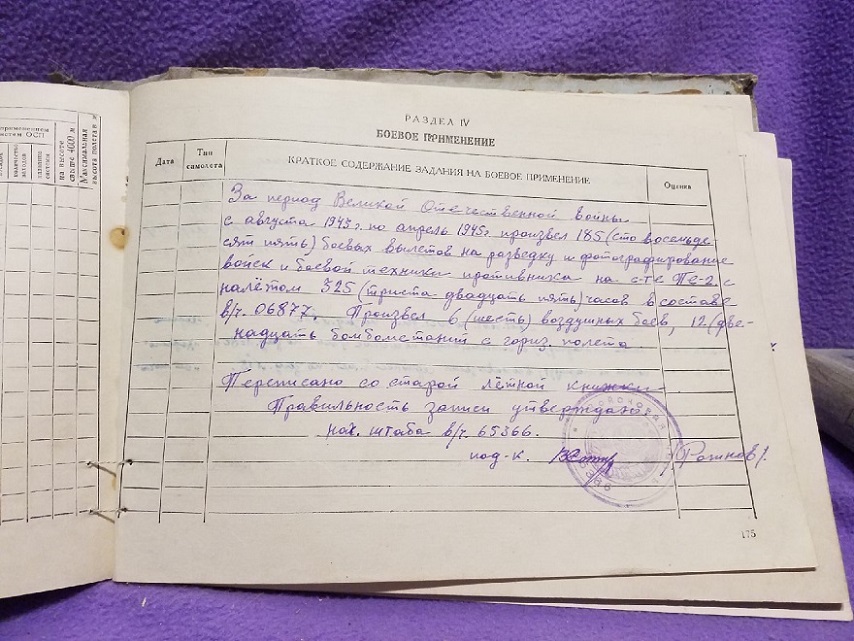 применением
систем ОСП
количество
заходов
название
системы
на высоте
свыше 4000 м
Максимальная
высота полета в м
РАЗДЕЛ IV
БОЕВОЕ ПРИМЕНЕНИЕ
Дата
Тип
самолета
КРАТКОЕ СОДЕРЖАНИЕ ЗАДАНИЯ НА БОЕВОЕ ПРИМЕНЕНИЕ
Оценка
За период Великой Отечественной войны
с августа 1943г. по апрель 1945г. произвел 185 (сто восемьде
сят пять) боевых вылетов на разведку и фотографирование
войск и боевой техники противника на с-те Пе-2 с
налётом 325 (триста двадцать пять) часов в составе
в/ч. 06877. Произвел 6 (шесть) воздушных боев, 12 (две-
надцать бомбометаний с гориз. полета.
Переписано со старой лётной книжки
Правильность записи утверждаю
нач. штаба в/ч. 65366.
под-к.
175